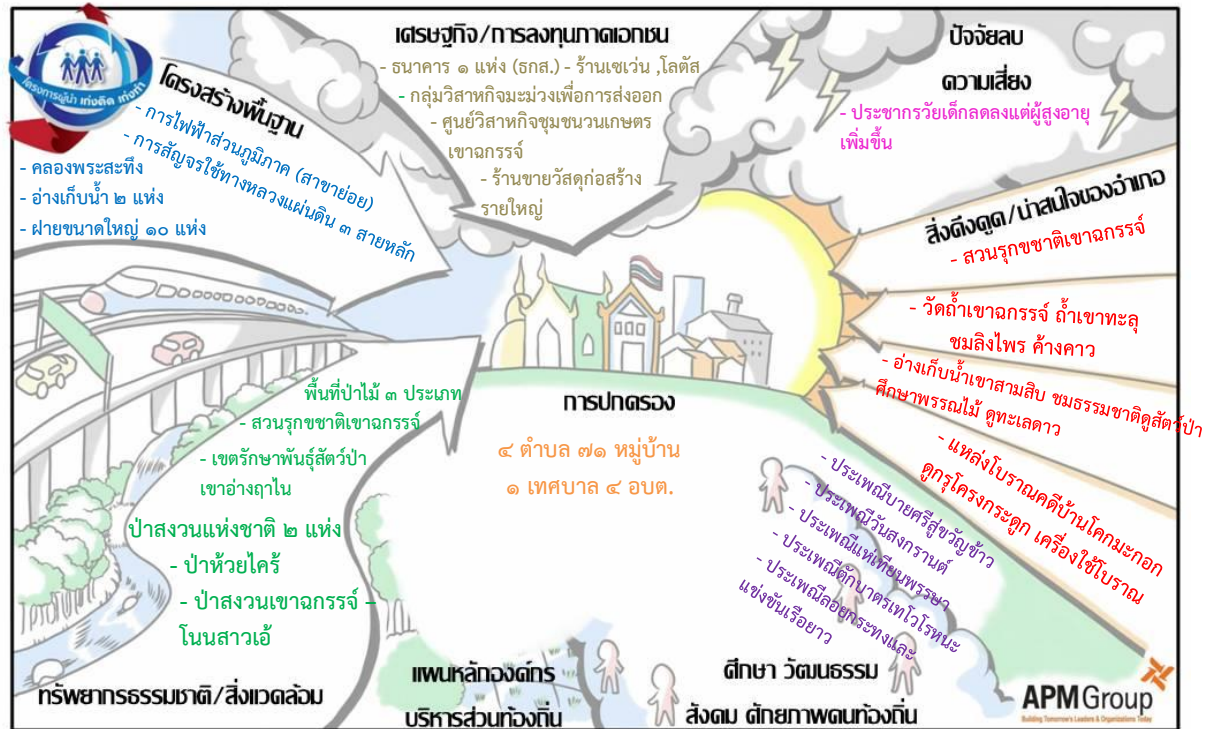 โครงการผู้นำ เก่งคิด เก่งทำ
โครงสร้างพื้นฐาน
- การไฟฟ้าส่วนภูมิภาค (สาขาย่อย)
- การสัญจรใช้ทางหลวงแผ่นดิน ๓ สายหลัก
- คลองพระสะทึง
- อ่างเก็บน้ำ ๒ แห่ง
- ฝายขนาดใหญ่ ๑๐ แห่ง
เศรษฐกิจ/การลงทุนภาคเอกชน
- ธนาคาร ๑ แห่ง (ธกส.) - ร้านเซเว่น ,โลตัส
- กลุ่มวิสาหกิจมะม่วงเพื่อการส่งออก
- ศูนย์วิสาหกิจชุมชนวนเกษตร
เขาฉกรรจ์
- ร้านขายวัสดุก่อสร้าง
รายใหญ่
ปัจจัยลบ
ความเสี่ยง
- ประชากรวัยเด็กลดลงแต่ผู้สูงอายุ
เพิ่มขึ้น
สิ่งดึงดูด/น่าสนใจของอำเภอ
- สวนรุกขชาติเขาฉกรรจ์
- วัดถ้ำเขาฉกรรจ์ ถ้ำเขาทะลุ
ชมลิงไพร ค้างคาว
- อ่างเก็บน้ำเขาสามสิบ ชมธรรมชาติดูสัตว์ป่า
ศึกษาพรรณไม้ ดูทะเลดาว
- แหล่งโบราณคดีบ้านโคกมะกอก
ดูกรุโครงกระดูก เครื่องใช้โบราณ
พื้นที่ป่าไม้ ๓ ประเภท
- สวนรุกขชาติเขาฉกรรจ์
- เขตรักษาพันธุ์สัตว์ป่า
เขาอ่างฤาไน
ป่าสงวนแห่งชาติ ๒ แห่ง
- ป่าห้วยไคร้
- ป่าสงวนเขาฉกรรจ์ –
โนนสาวเอ้
ทรัพยากรธรรมชาติ/สิ่งแวดล้อม
การปกครอง
๔ ตำบล ๗๑ หมู่บ้าน
๑ เทศบาล ๔ อบต.
- ประเพณีบายศรีสู่ขวัญข้าว
- ประเพณีวันสงกรานต์
- ประเพณีแห่เทียนพรรษา
- ประเพณีตักบาตรเทโวโรหนะ
- ประเพณีลอยกระทงและ
แข่งขันเรือยาว
แผนหลักองค์กร
บริหารส่วนท้องถิ่น
ศึกษา วัฒนธรรม
สังคม ศักยภาพคนท้องถิ่น
APMGroup
Building Tomorrow's Leaders & Organizations Today